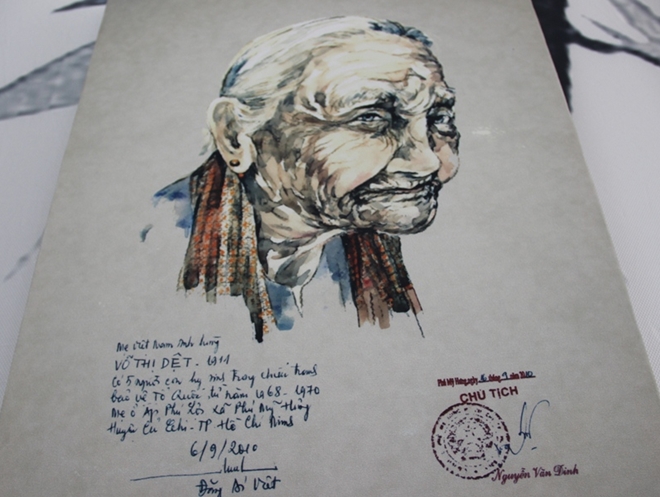 Mẹ Việt Nam Anh hùng
VÕ THỊ DỆT - 1911
Có 5 người con hy sinh trong chiến tranh
bảo vệ Tổ Quốc từ năm 1968 - 1970
Mẹ ở Ấp Phú Lợi xã Phú Mỹ Hưng
Huyện Củ Chi - TP Hồ Chí Minh
6/9/2010
Đặng Ái Việt
Phú Mỹ Hưng, ngày tháng 9 năm 2010
CHỦ TỊCH
Nguyễn Văn Đính